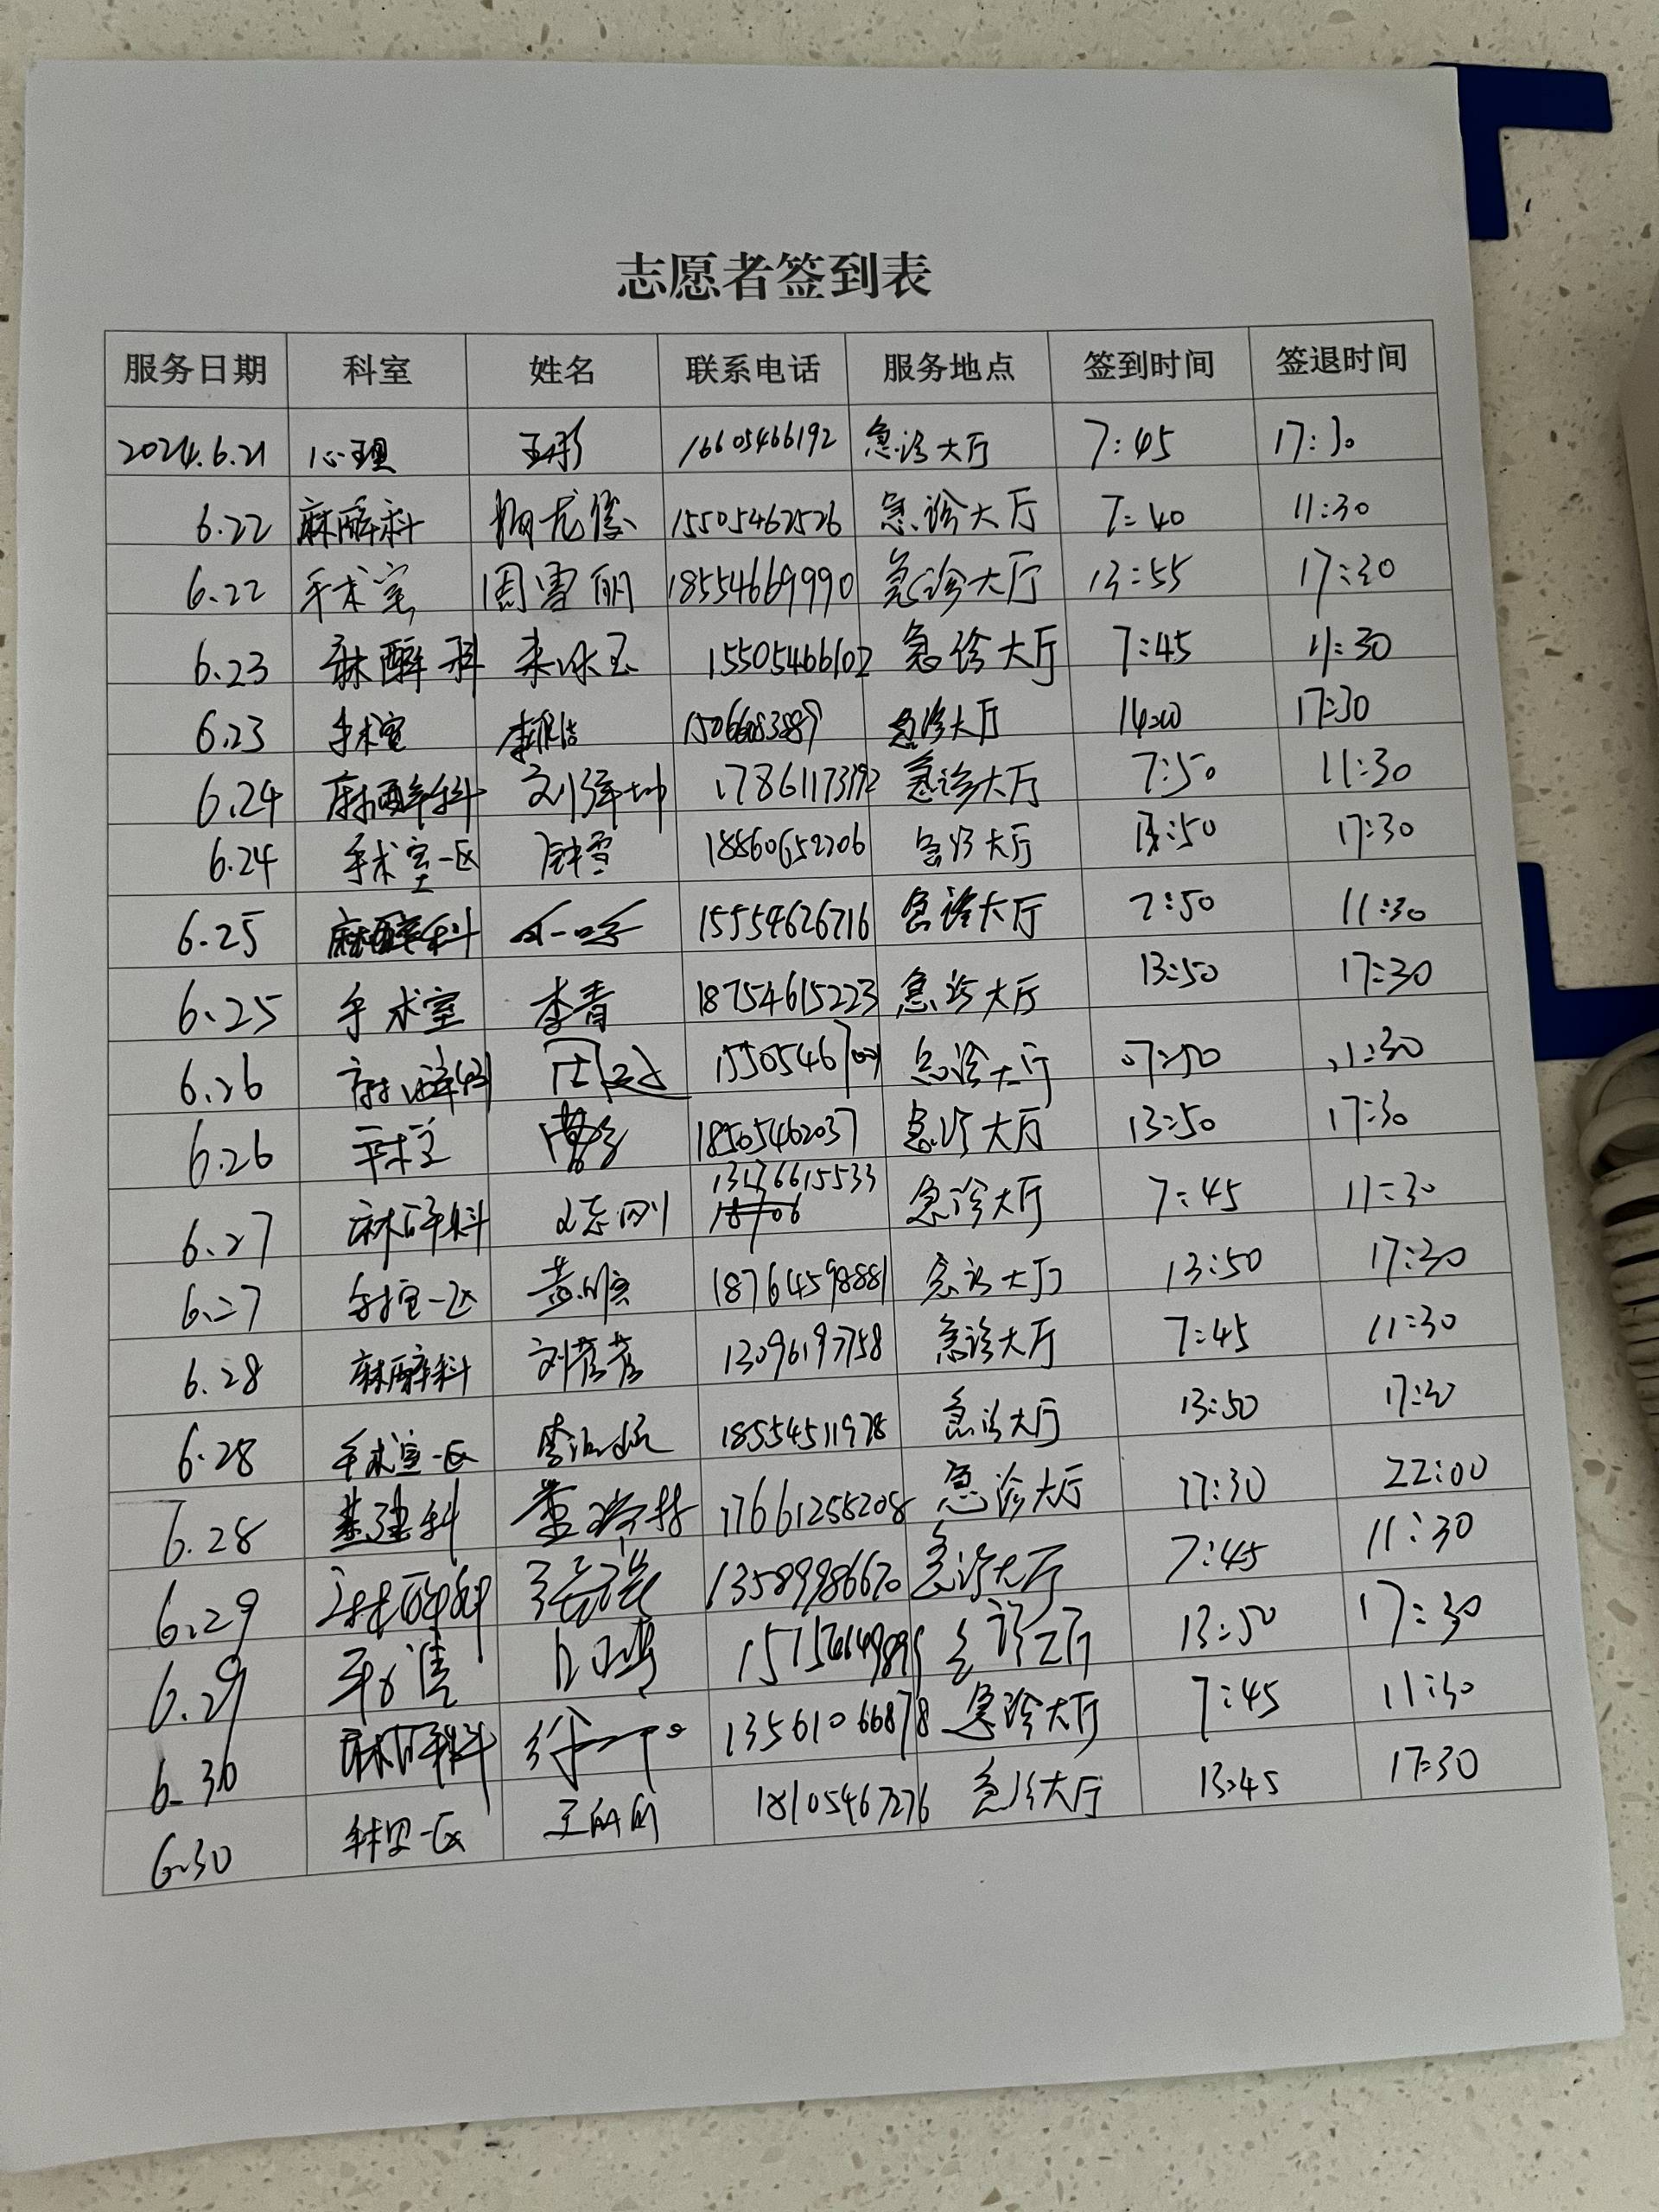 志愿者签到表
服务日期 科室 姓名 联系电话 服务地点 签到时间 签退时间
2024.6.21 心理 王彤 16605466192 急诊大厅 7:45 17:30
6.22 麻醉科 15505462526 急诊大厅 7:40 11:30
6.22 手术室 周雪丽 18554669990 急诊大厅 13:55 17:30
6.23 麻醉科 15505466102 急诊大厅 7:45 11:30
6.23 手术室 急诊大厅 14:00 17:30
6.24 麻醉科 急诊大厅 7:50 11:30
6.24 手术室一区 18860652206 急诊大厅 13:50 17:30
6.25 麻醉科 15554626716 急诊大厅 7:50 11:30
6.25 手术室 李青 18754615223 急诊大厅 13:50 17:30
6.26 麻醉科 急诊大厅 07:50 11:30
6.26 手术室 18505462037 急诊大厅 13:50 17:30
6.27 麻醉科 急诊大厅 7:45 11:30
6.27 手术室一区 18764598881 急诊大厅 13:50 17:30
6.28 麻醉科 刘芳芳 13096197758 急诊大厅 7:45 11:30
6.28 手术室一区 18554511978 急诊大厅 13:50 17:30
6.28 基建科 17661258208 急诊大厅 17:30 22:00
6.29 麻醉科 13589986670 急诊大厅 7:45 11:30
6.29 手术室 急诊大厅 13:50 17:30
6.30 麻醉科 13561066878 急诊大厅 7:45 11:30
6.30 手术室一区 18105467276 急诊大厅 13:45 17:30